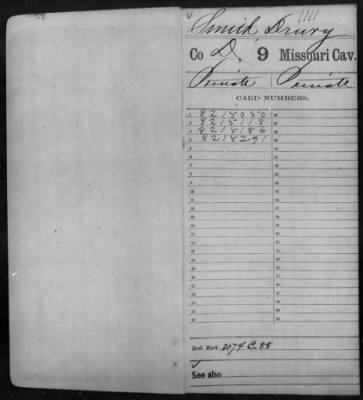 1111
Smith Drury
Co D, 9 Missouri Cav.
Private | Private
CARD NUMBERS.
1 8215050
2 8215118
3 8215186
4 8215251
Book Mark: 3079 C. 88
See also